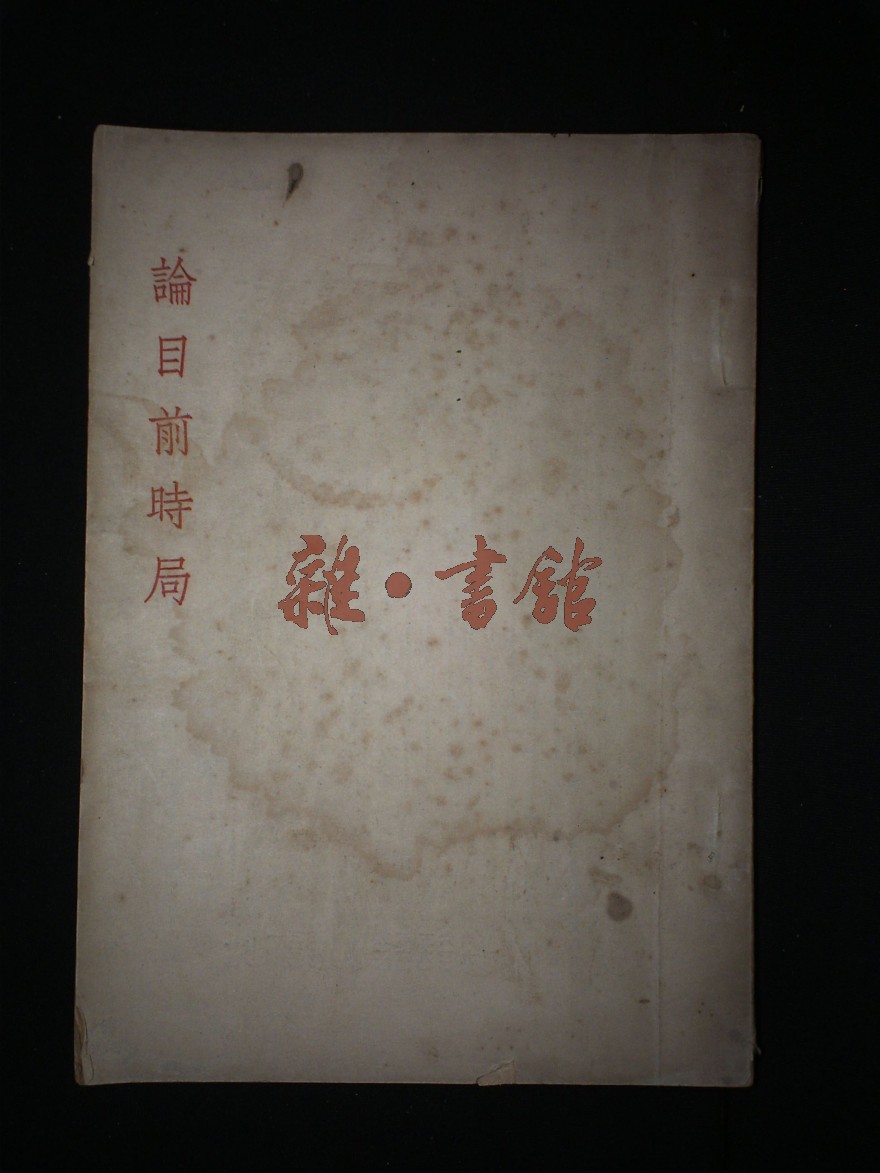 論目前時局
雜·書館